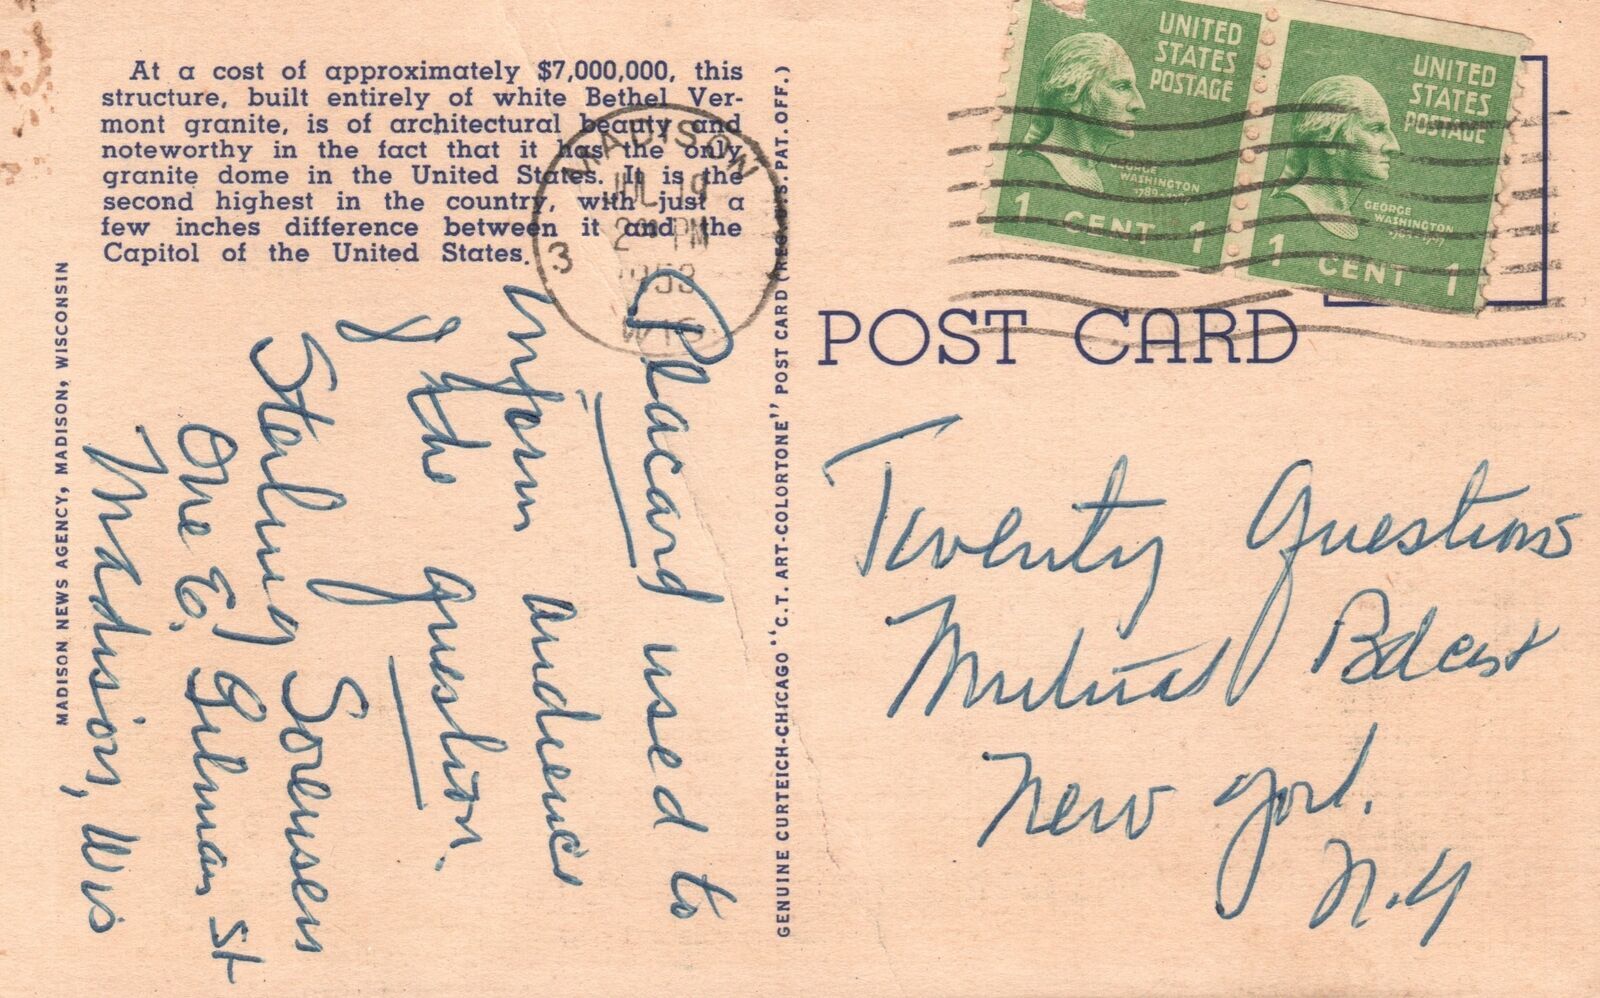 At a cost of approximately $7,000,000, this
structure, built entirely of white Bethel Ver-
mont granite, is of architectural beauty and
noteworthy in the fact that it has the only
granite dome in the United States. It is the
second highest in the country, with just a
few inches difference between it and the
Capitol of the United States.
MADISON NEWS AGENCY, MADISON, WISCONSIN
Placard used to
inform audience
of the question.
Sterling Sorensen
One E. Gilman St
Madison, Wis
GENUINE CURTEICH-CHICAGO "C.T. ART-COLORTONE" POST CARD (REG. U.S. PAT. OFF.)
MADISON
JUL 19
PM
1953
WIS
3
UNITED
STATES
POSTAGE
GEORGE
WASHINGTON
1 CENT 1
UNITED
STATES
POSTAGE
GEORGE
WASHINGTON
1 CENT 1
POST CARD
Twenty Questions
Mutual Bdcast
New York.
N.Y